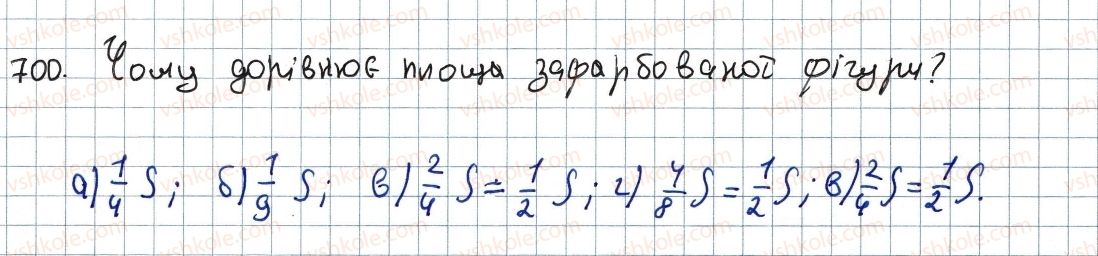 700. Чому дорівнює площа зафарбованої фігури?
а) 1/4 S; б) 1/9 S; в) 2/4 S = 1/2 S; г) 4/8 S = 1/2 S; в) 2/4 S = 1/2 S.